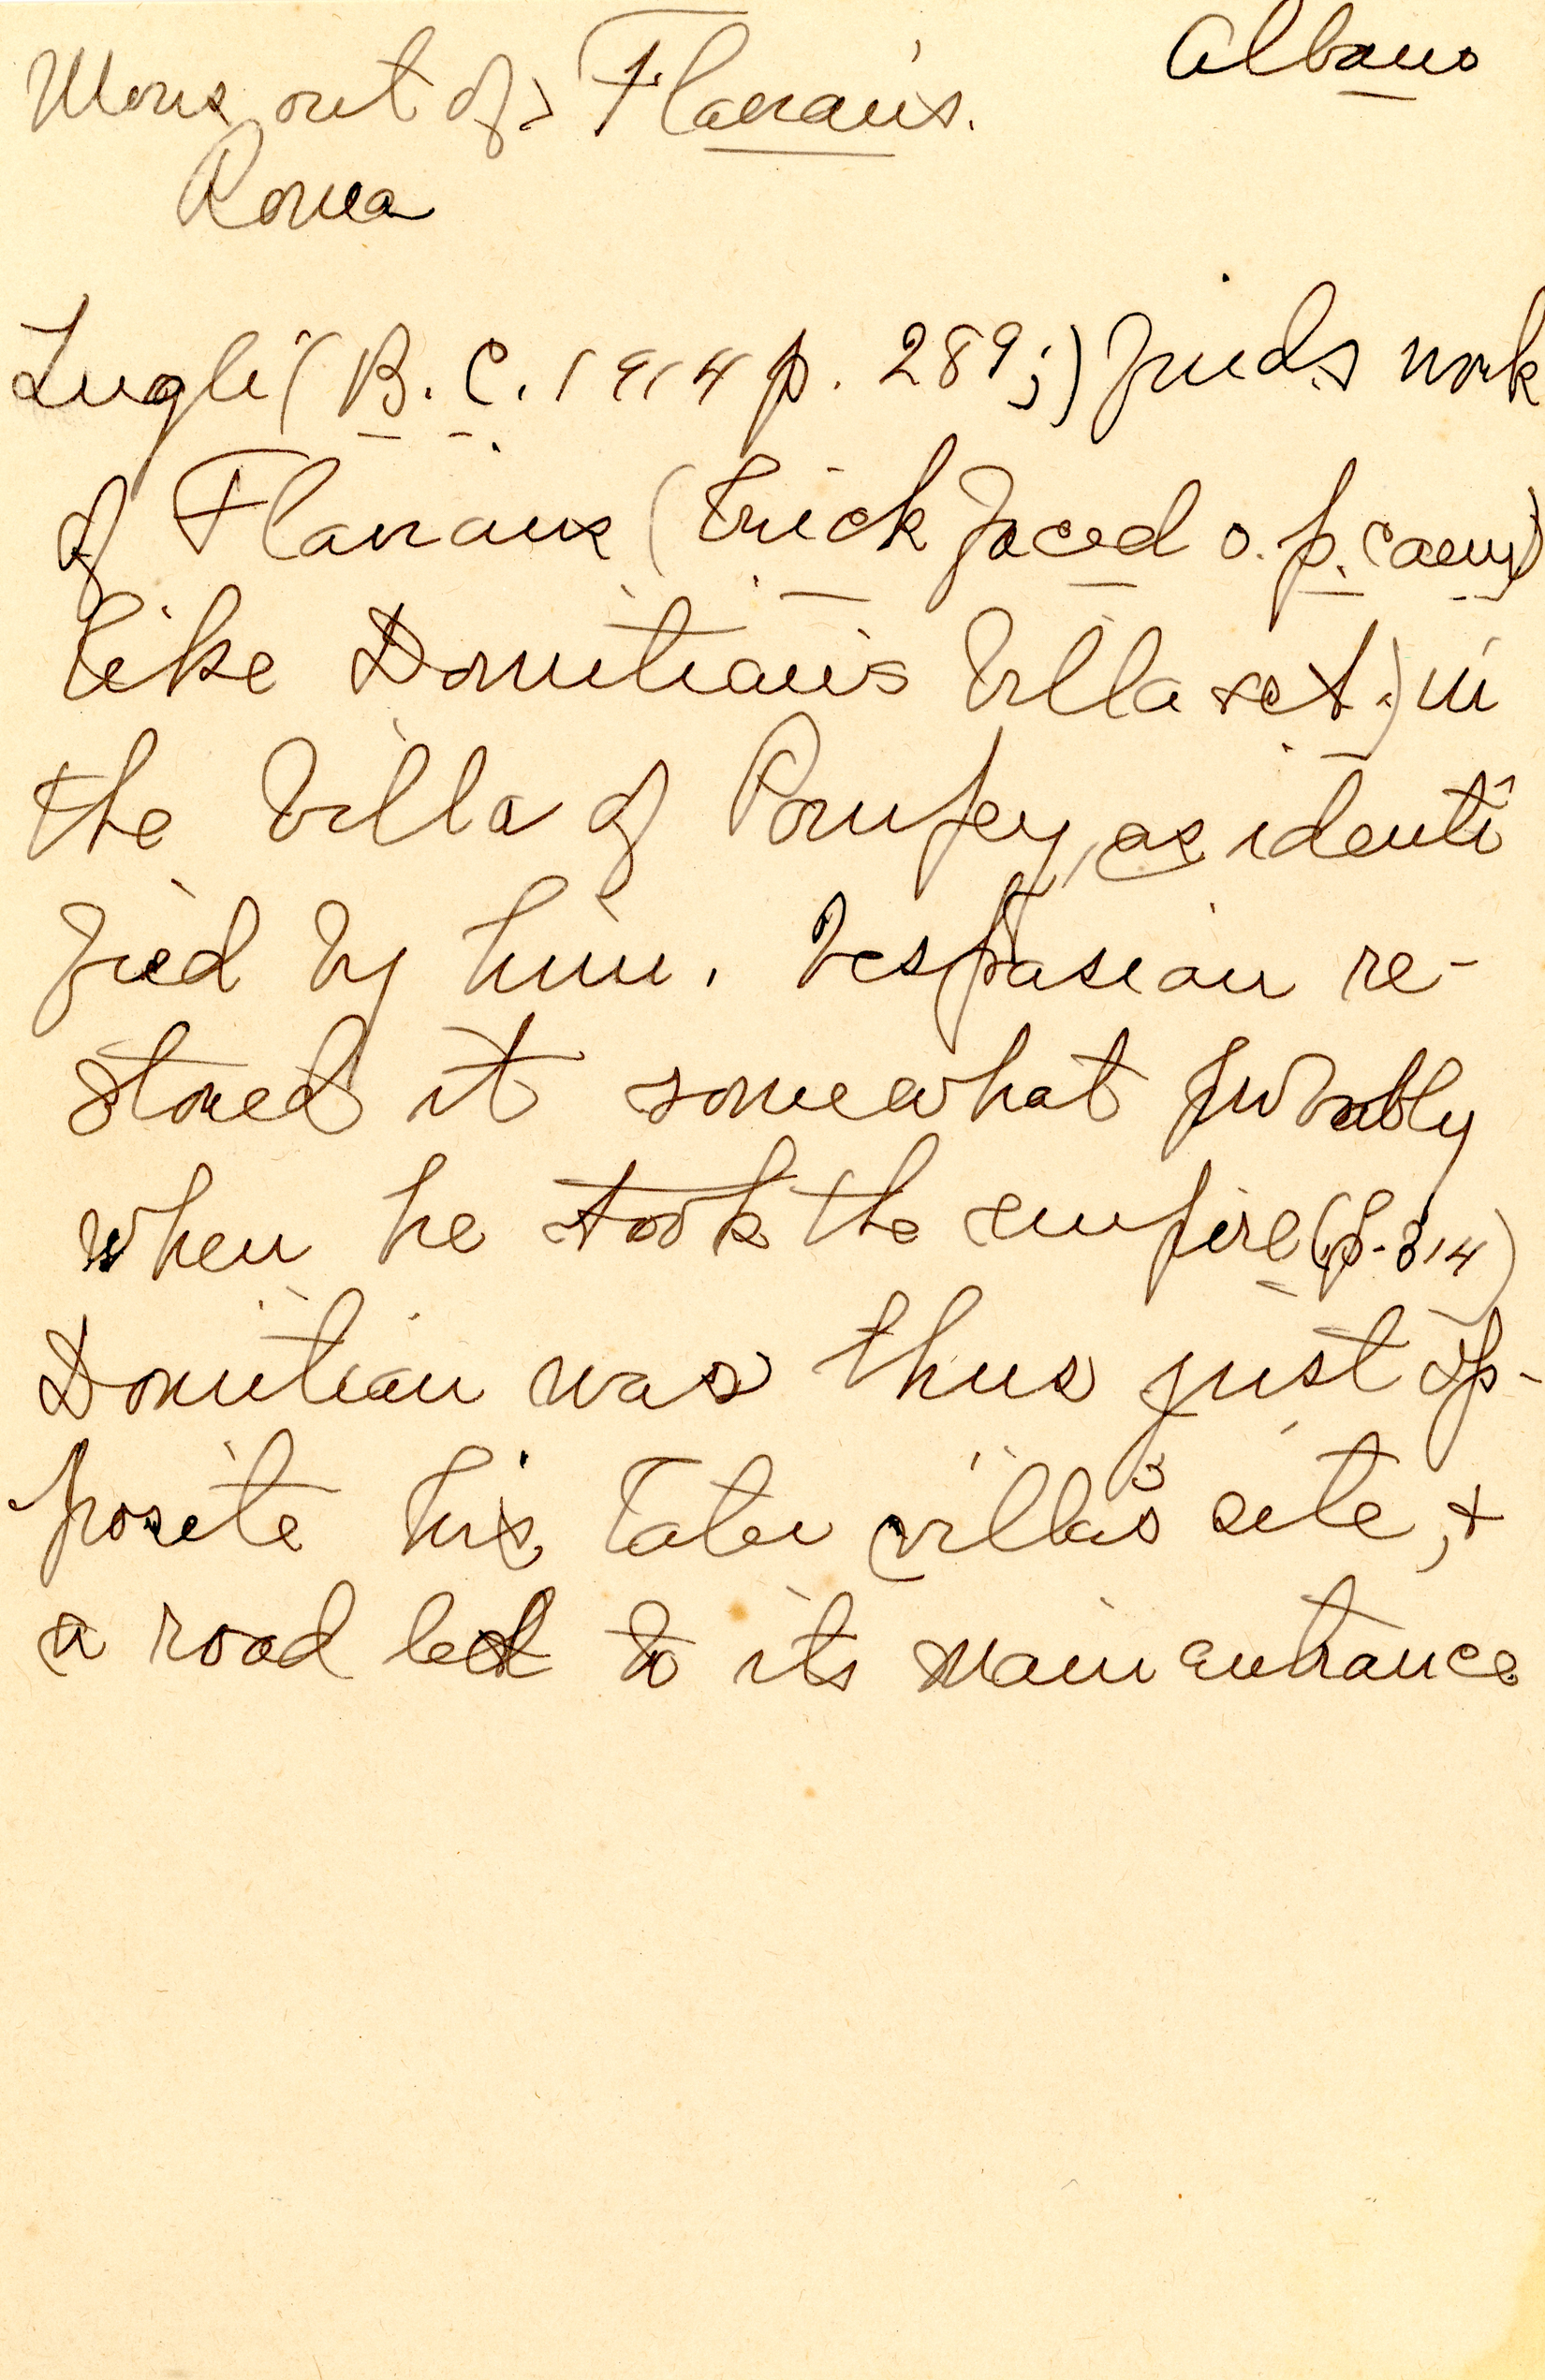 Mons. out of Flavians. Albano
Roma
Lugli (B. C. 1914 p. 289;) finds work
of Flavians (brick faced o. p. caem)
like Domitian's Villa
the Villa of Pompey, as identi
fied by him. Vespasian re-
stored it somewhat probably
when he took the empire (p. 314)
Domitian was thus just op-
posite his later villa's site, +
a road led to its main entrance